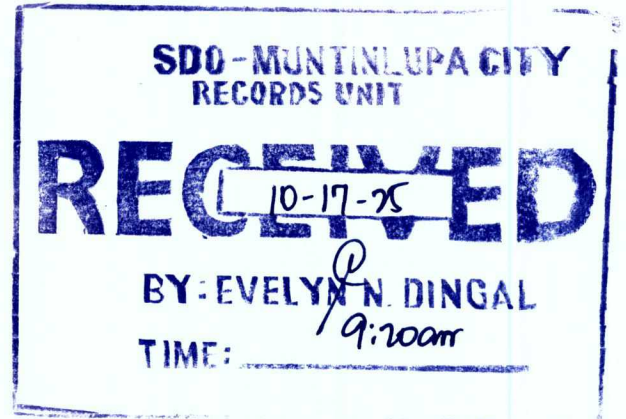 SDO-MUNTINLUPA CITY
RECORDS UNIT
RECEIVED
10-17-25
BY: EVELYN N. DINGAL
9:20am
TIME: